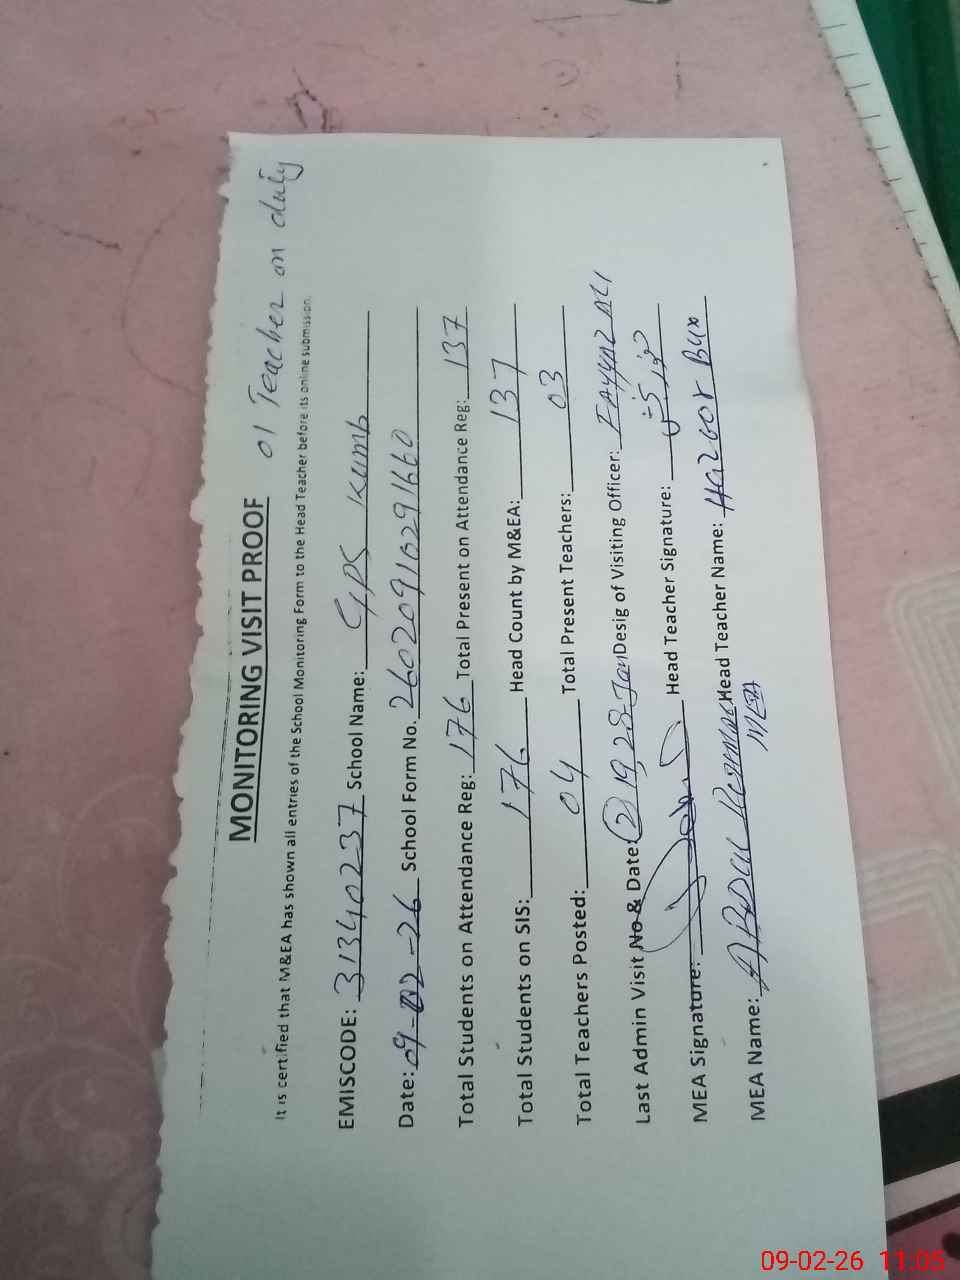 MONITORING VISIT PROOF 01 Teacher on duty
It is certified that M&EA has shown all entries of the School Monitoring Form to the Head Teacher before its online submission.
EMISCODE: 31340237 School Name: GPS Kumb
Date: 09-02-26 School Form No. 26020910291660
Total Students on Attendance Reg: 176 Total Present on Attendance Reg: 137
Total Students on SIS: 176 Head Count by M&EA: 137
Total Teachers Posted: 04 Total Present Teachers: 03
Last Admin Visit No & Date: (2) 19, 28-Jan Desig of Visiting Officer: FAYYAZ ALI
MEA Signature: Head Teacher Signature:
MEA Name: ABDUL Head Teacher Name: Hazoor Bux
MEA
09-02-26 11:05